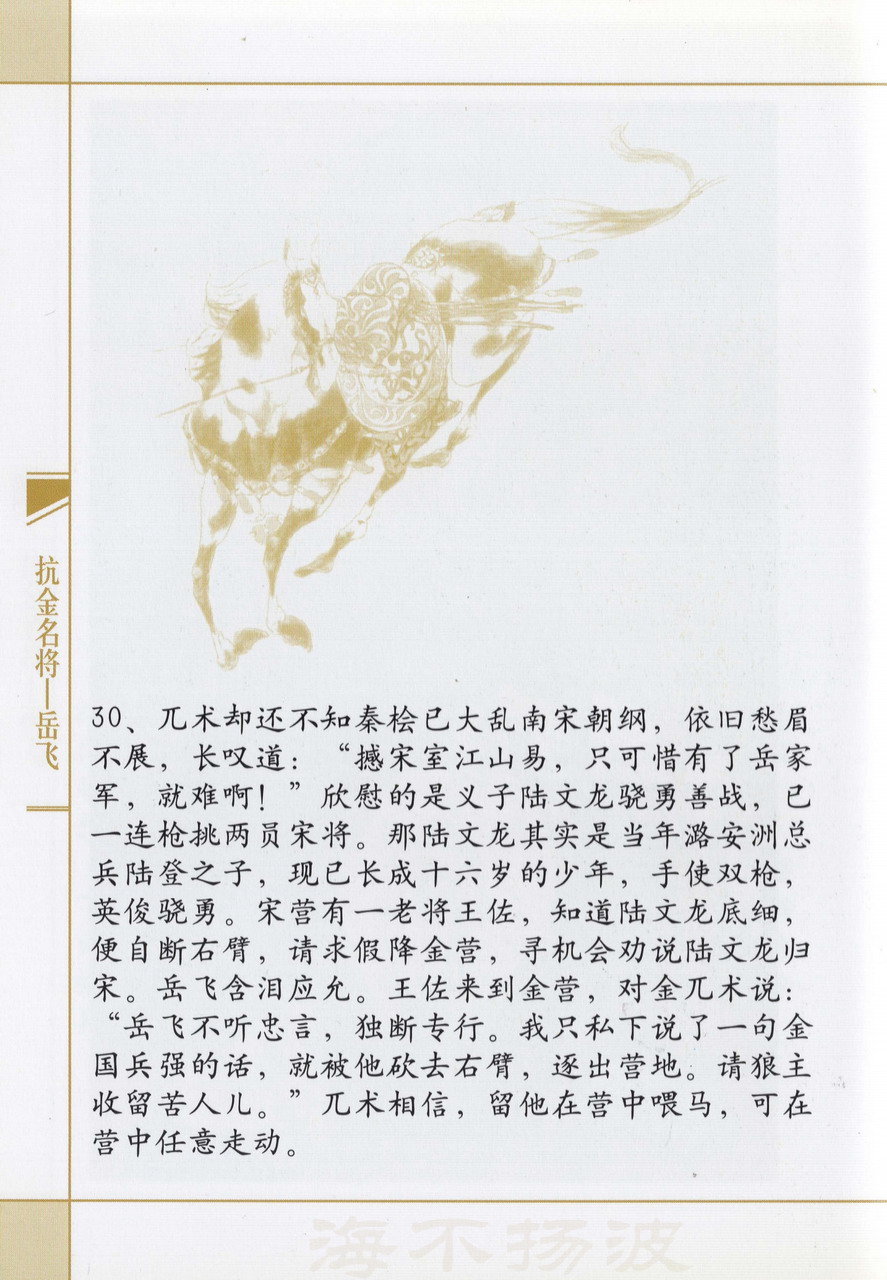 抗金名将—岳飞
30、兀术却还不知秦桧已大乱南宋朝纲，依旧愁眉
不展，长叹道：“撼宋室江山易，只可惜有了岳家
军，就难啊！”欣慰的是义子陆文龙骁勇善战，已
一连枪挑两员宋将。那陆文龙其实是当年潞安洲总
兵陆登之子，现已长成十六岁的少年，手使双枪，
英俊骁勇。宋营有一老将王佐，知道陆文龙底细，
便自断右臂，请求假降金营，寻机会劝说陆文龙归
宋。岳飞含泪应允。王佐来到金营，对金兀术说：
“岳飞不听忠言，独断专行。我只私下说了一句金
国兵强的话，就被他砍去右臂，逐出营地。请狼主
收留苦人儿。”兀术相信，留他在营中喂马，可在
营中任意走动。
海不扬波